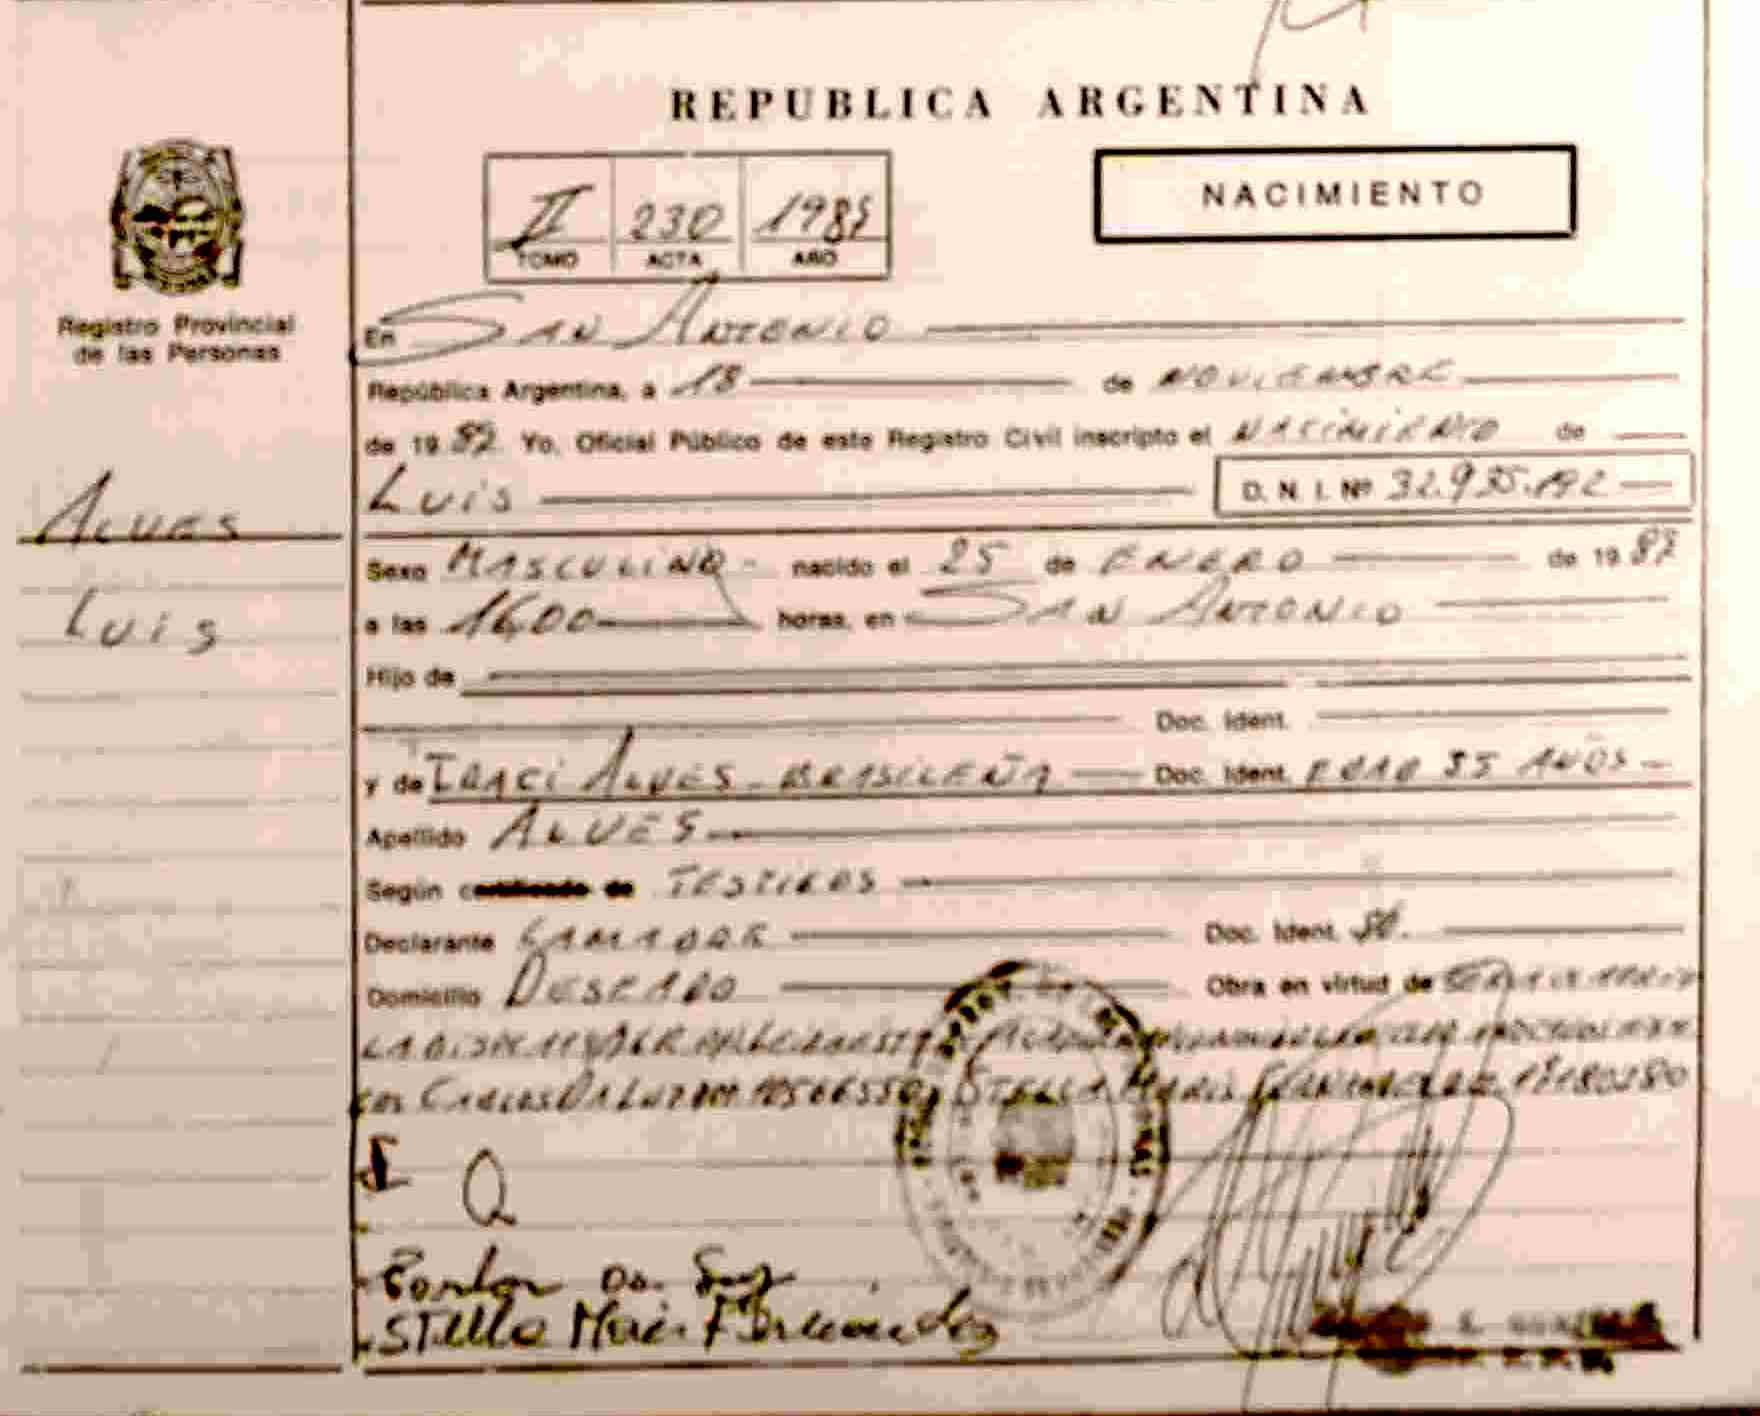 REPUBLICA ARGENTINA
NACIMIENTO
II 230
TOMO ACTA AÑO
Registro Provincial
de las Personas
En SAN ANTONIO
República Argentina, a 18 de NOVIEMBRE
de 19 87 Yo, Oficial Público de este Registro Civil inscripto el NACIMIENTO de
LUIS D. N. I. Nº 32.935.192
ALVES
LUIS
Sexo MASCULINO - nacido el 25 de ENERO de 19 87
a las 16,00 horas, en SAN ANTONIO
Hijo de
Doc. Ident.
y de IRACI ALVES - BRASILEÑA Doc. Ident. EDAD 35 AÑOS -
Apellido ALVES
Según certificado de TESTIGOS
Declarante LA MADRE Doc. Ident.
Domicilio DESEADO Obra en virtud de
CARLOS DA LUZ 10566550 STELLA MARIS 17180280
Da Luz
Stella Maris Fernandez